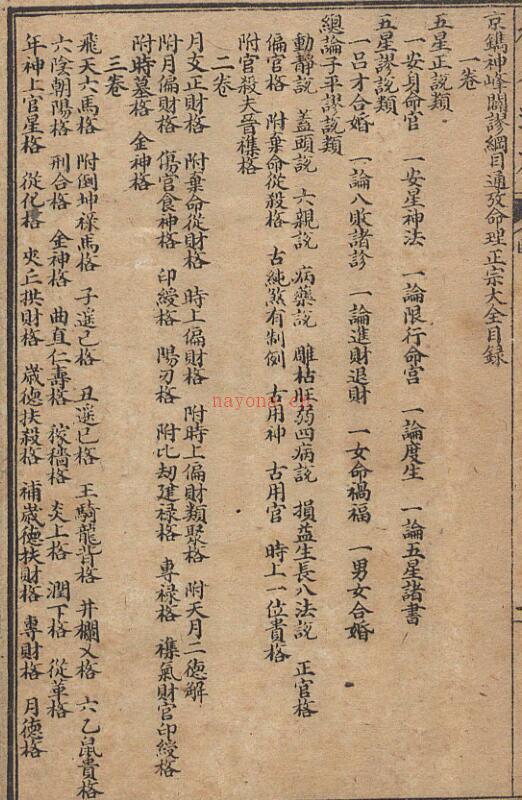 京鐫神峰闢謬綱目通攷命理正宗大全目録
一卷
五星正說類
一安身命官 一安星神法 一論限行命宮 一論度生 一論五星諸書
五星謬說類
一呂才合婚 一論八敗諸診 一論進財退財 一女命禍福 一男女合婚
總論子平謬說類
動靜說 蓋頭說 六親說 病藥說 雕枯旺弱四病說 損益生長八法說 正官格
偏官格 附棄命從殺格 古純煞有制例 古用神 古用官 時上一位貴格
附官殺去留襍格
二卷
月支正財格 附棄命從財格 時上偏財格 附時上偏財類聚格 附天月二德解
附月偏財格 傷官食神格 印綬格 陽刃格 附比刼建禄格 專禄格 襍氣財官印綬格
附時墓格 金神格
三卷
飛天六馬格 附倒坤祿馬格 子遥巳格 丑遥巳格 壬騎龍背格 井欄叉格 六乙鼠貴格
六陰朝陽格 刑合格 金神格 曲直仁壽格 稼穡格 炎上格 潤下格 從革格
年神上官星格 從化格 夾丘拱財格 歲德扶殺格 補歲德扶財格 專財格 月德格
nayona.cn